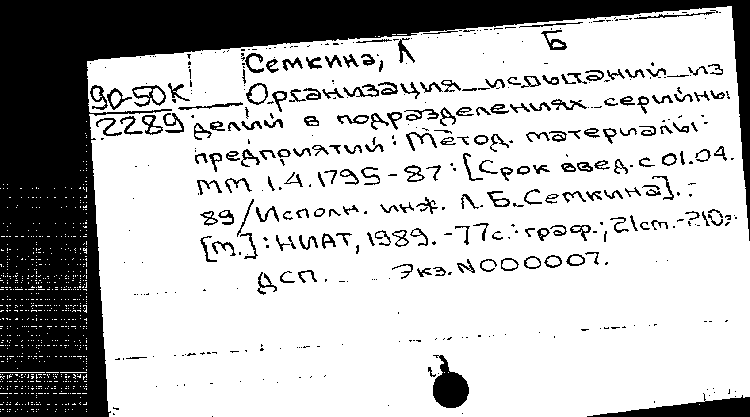 Семкина, Л Б
90-50К Организация испытаний из
2289 делий в подразделениях серийны
предприятий: Метод. материалы:
ММ 1.4.1795-87: [Срок введ. с 01.04.
89/Исполн. инж. Л.Б. Семкина]. -
[М.]: НИАТ, 1989. - 77с.: граф.; 21см. - 210э.
ДСП. Экз. N000007.